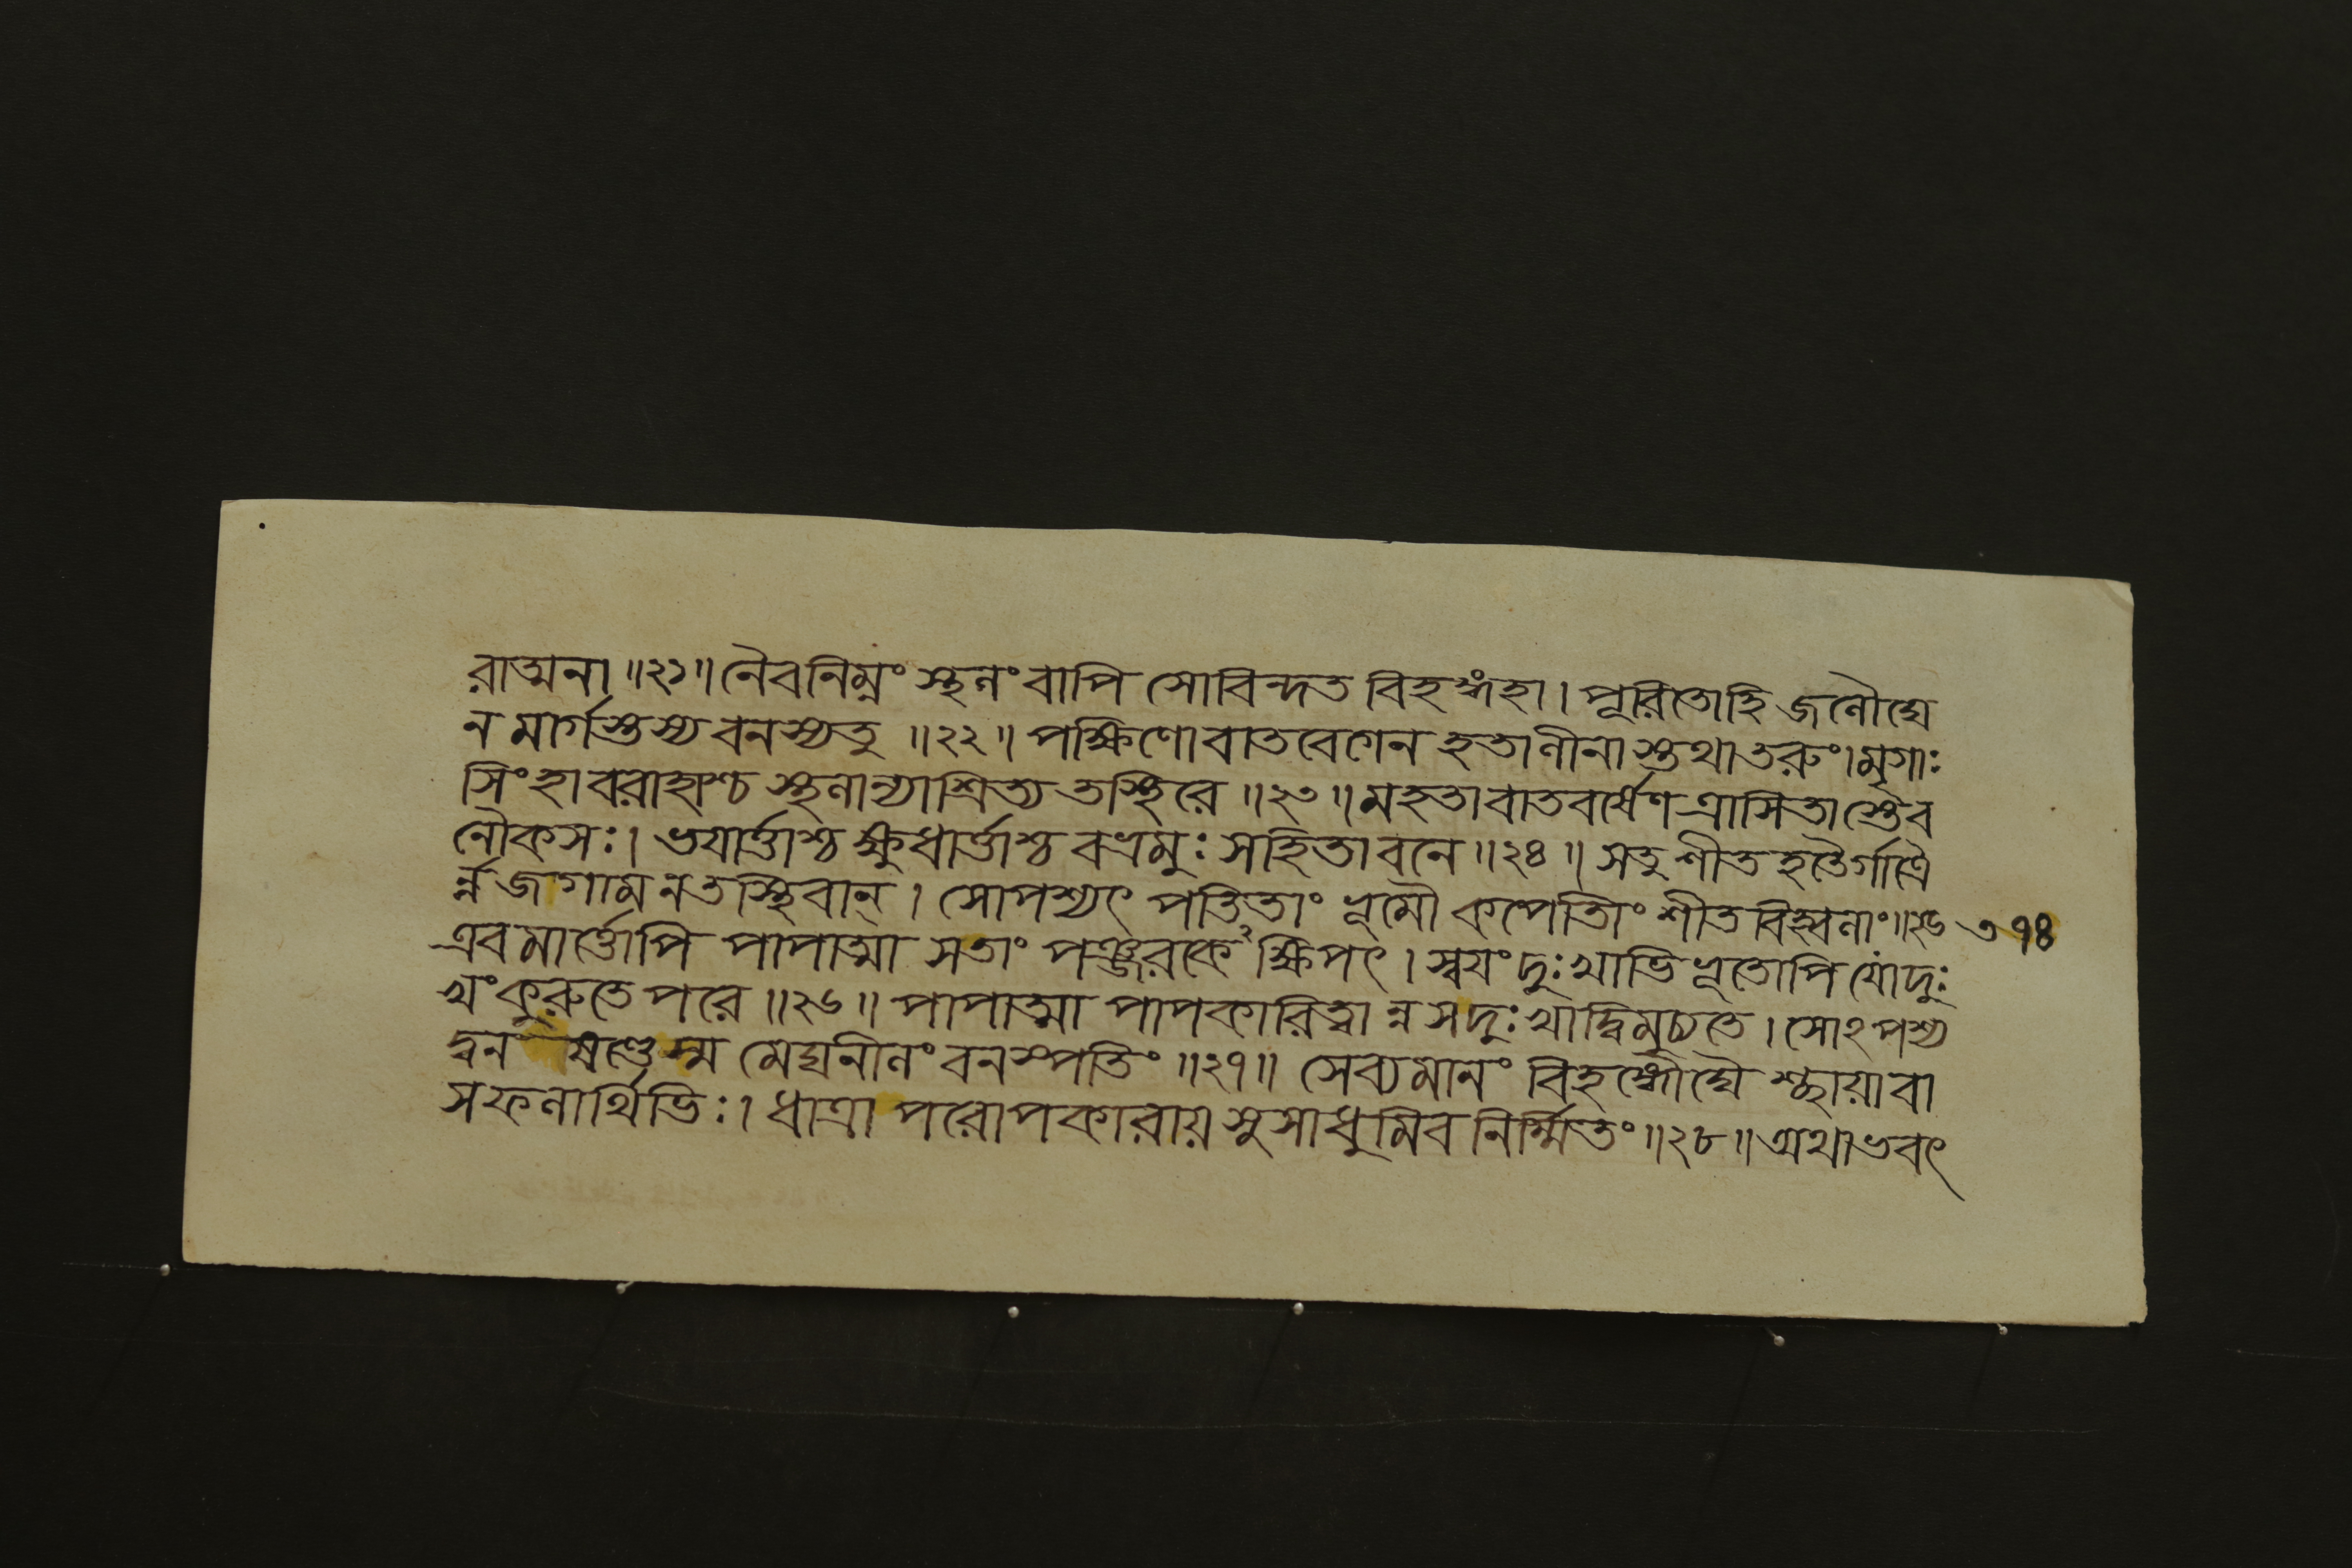 রাত্মনা ॥২১॥ নৈবনিম্নং স্থলং বাপি সোবিন্দত বিহঙ্গহা। পূরিতোহি জলৌঘে
ন মার্গস্তস্য বনস্যতু ॥২২॥ পক্ষিণো বাতবেগেন হতা লীনাস্তথাতরুং। মৃগাঃ
সিংহা বরাহাশ্চ স্থলান্যাশ্রিত্য তস্থিরে ॥২৩॥ মহতা বাতবর্ষেণ ত্রাসিতাস্তেব
নৌকসঃ। ভয়ার্ত্তাশ্চ ক্ষুধার্ত্তাশ্চ বভ্রমুঃ সহিতা বনে ॥২৪॥ সতু শীত হতৈর্গাত্রৈ
র্ন্ন জগাম ন তস্থিবান্। সোপশ্যৎ পতিতাং ভূমৌ কপোতিং শীত বিহ্বলাং॥২৫
৩৭৪
এবমার্ত্তোপি পাপাত্মা সতাং পঞ্জরকেঽক্ষিপৎ। স্বয়ং দুঃখাভিভূতোপি যো দুঃ
খং কুরুতে পরে ॥২৬॥ পাপাত্মা পাপকারিত্বান্ন স দুঃখাদ্বিমুচ্যতে। সোঽপশ্য
দ্বন ষণ্ডেস্ম মেঘনীলং বনস্পতিং ॥২৭॥ সেব্যমানং বিহঙ্গৌঘৈ শ্ছায়াবা
সফলার্থিভিঃ। ধাত্রা পরোপকারায় সুসাধুমিব নির্ম্মিতং ॥২৮॥ অথাভবৎ